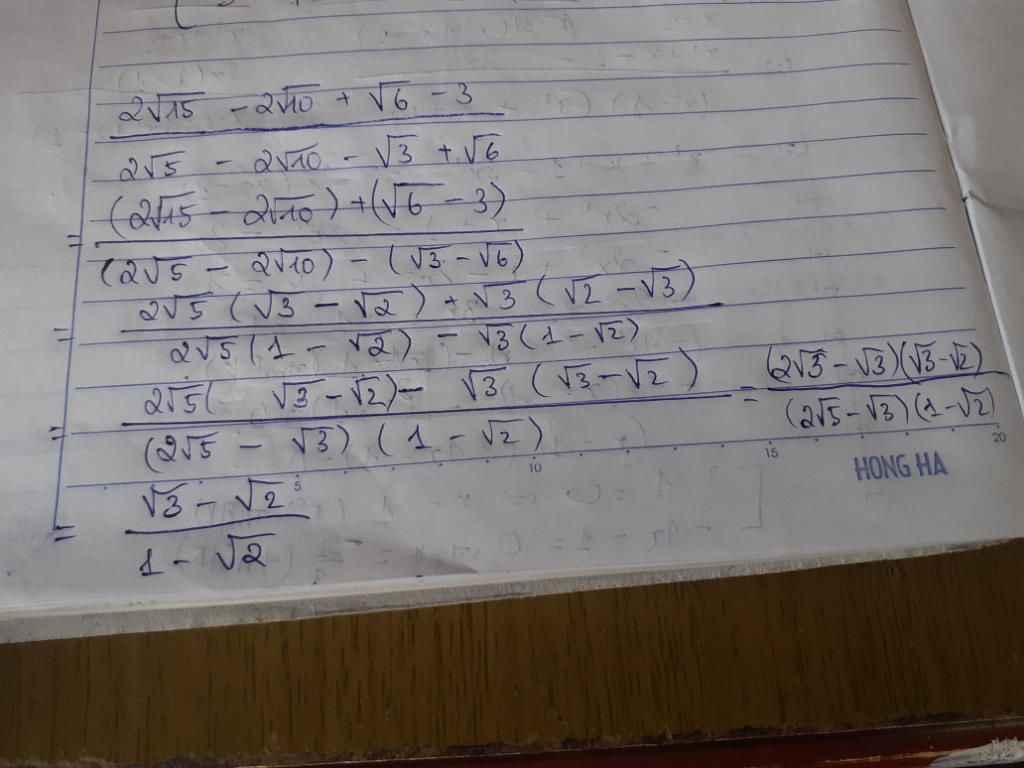 2√15 - 2√10 + √6 - 3
2√5 - 2√10 - √3 + √6
= (2√15 - 2√10) + (√6 - 3)
(2√5 - 2√10) - (√3 - √6)
= 2√5 (√3 - √2) + √3 (√2 - √3)
2√5 (1 - √2) - √3 (1 - √2)
= 2√5 ( √3 - √2) - √3 (√3 - √2) = (2√5 - √3)(√3 - √2)
(2√5 - √3) (1 - √2) (2√5 - √3)(1 - √2)
5 10 15 20
HONG HA
= √3 - √2
1 - √2